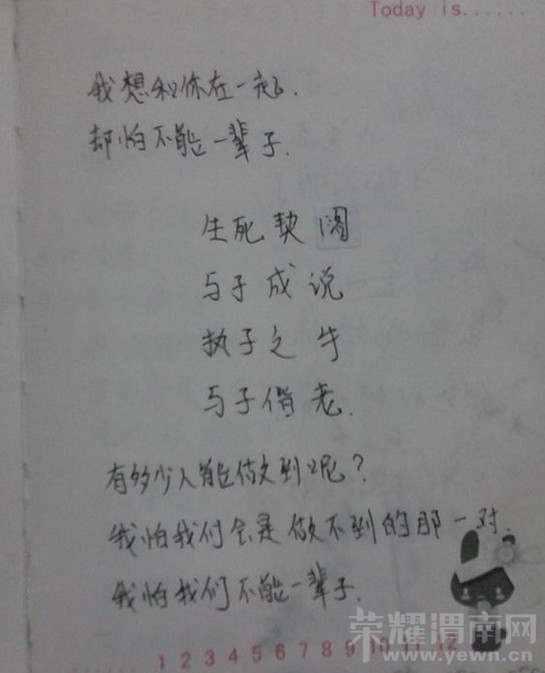 Today is......
我想和你在一起.
却怕不能一辈子.
生死契阔
与子成说
执子之手
与子偕老.
有多少人能做到呢?
我怕我们会是做不到的那一对.
我怕我们不能一辈子.
荣耀渭南网
1 2 3 4 5 6 7 8 9 10 11 12
www.yewn.cn